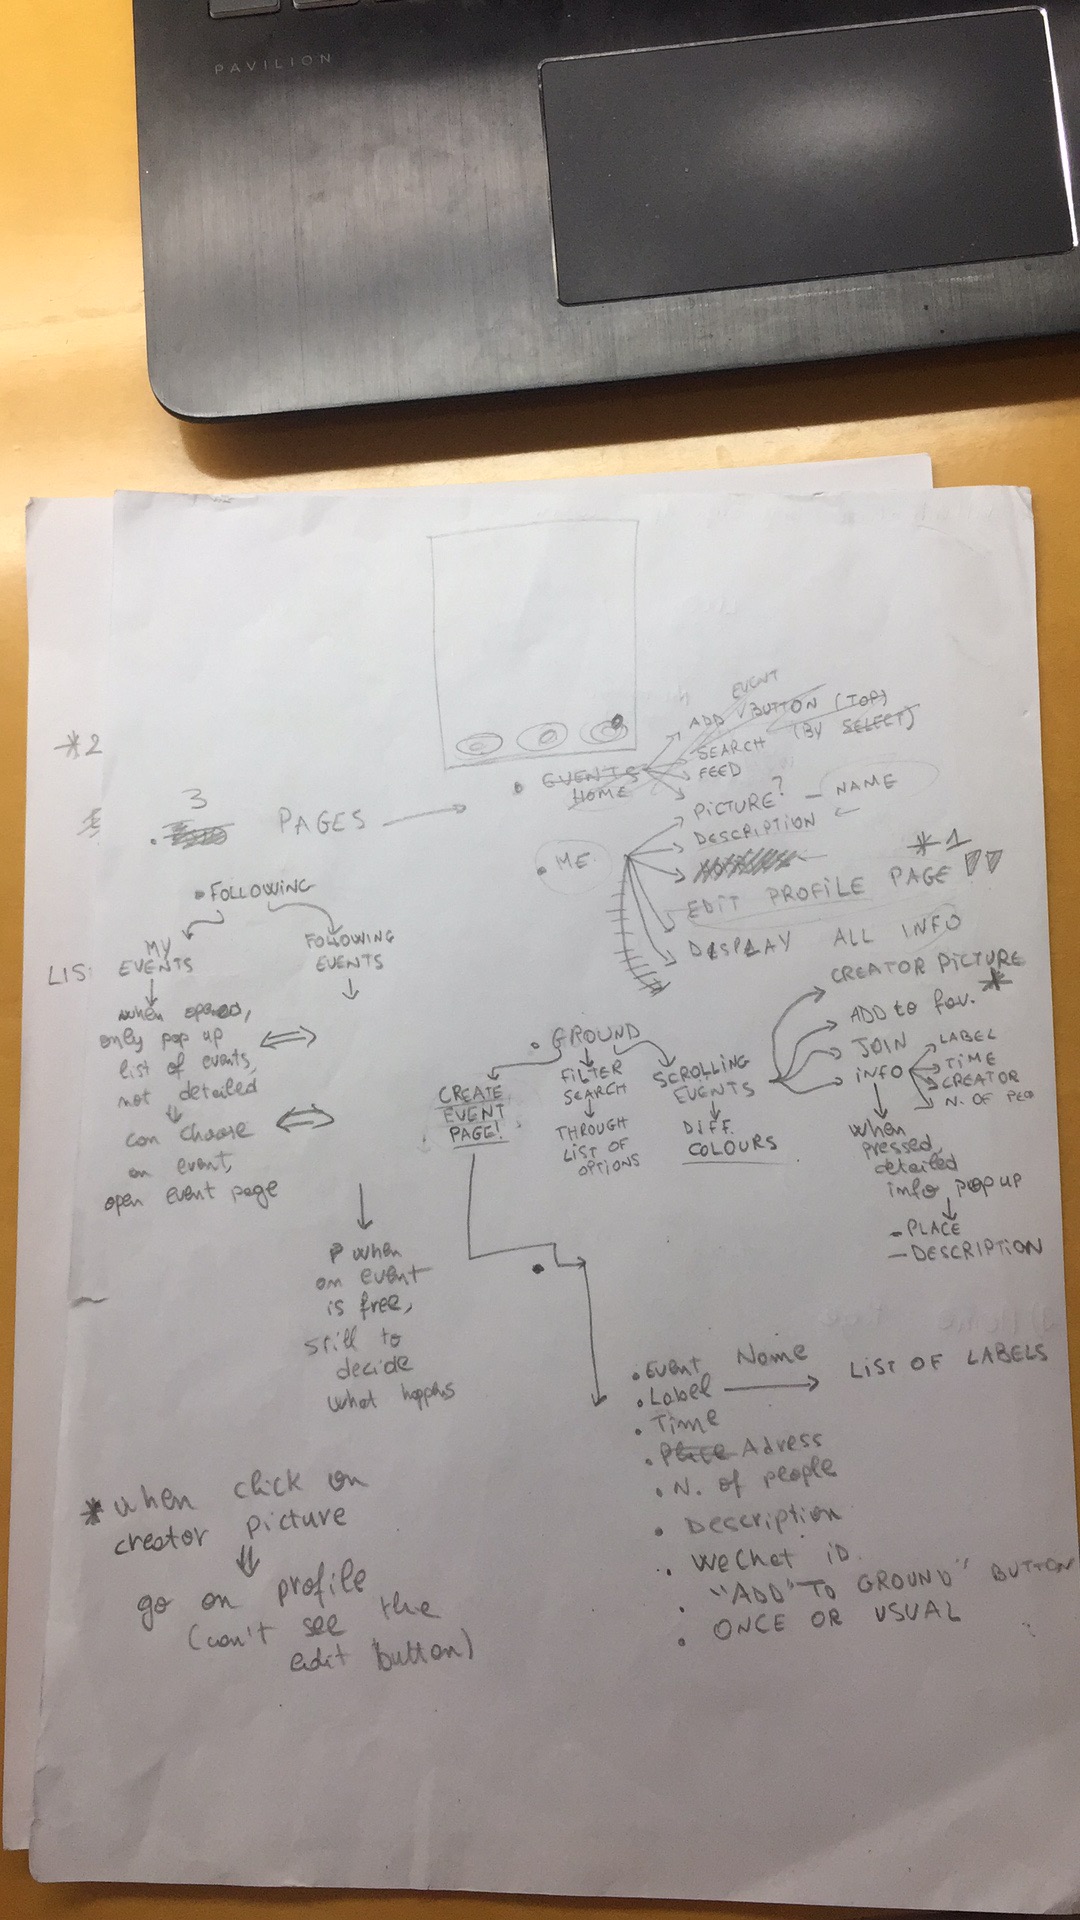 PAVILION
*2
EVENT
ADD BUTTON (TOP)
SEARCH (BY SELECT)
FEED
EVENTS
HOME
3
PAGES
PICTURE? - NAME
DESCRIPTION
ME
*1
EDIT PROFILE PAGE
DISPLAY ALL INFO
FOLLOWING
MY
EVENTS
FOLLOWING
EVENTS
LIS:
when opened,
only pop up
list of events,
not detailed
can choose
an event,
open event page
P when
an event
is free,
still to
decide
what happens
GROUND
CREATE
EVENT
PAGE!
FILTER
SEARCH
THROUGH
LIST OF
OPTIONS
SCROLLING
EVENTS
DIFF.
COLOURS
CREATOR PICTURE
*
ADD to fav.
JOIN
INFO
LABEL
TIME
CREATOR
N. OF PEO
when
pressed,
detailed
info pop up
- PLACE
- DESCRIPTION
Event Name
Label
LIST OF LABELS
Time
Place Adress
N. of people
Description
WeChat iD.
"ADD" TO GROUND" BUTTON
ONCE OR USUAL
* when click on
creator picture
go on profile
(can't see the
edit button)